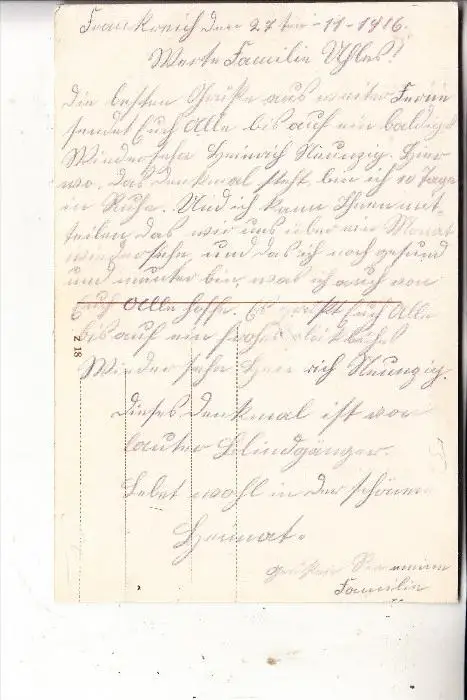 Frankreich den 27ten-11-1916.
Werte Familie Uhles!
Die besten Grüße aus weiter Ferne
sendet Euch Alle bis auf ein baldiges
Wiedersehn Heinrich Neunzig. Hier
wo, das Denkmal steht bin ich 10 Tage
in Ruhe. Und ich kann Ihnen mit-
teilen das wir uns über ein Monat
wiedersehn, und das ich noch gesund
und munter bin, was ich auch von
Euch Alle hoffe. Es grüßt Euch Alle
bis auf ein frohes
Wiedersehn Heinrich Neunzig.
Dieses Denkmal ist von
lauter Blindgänger.
Lebet wohl in der schönen
Heimat.
Familie
2 18